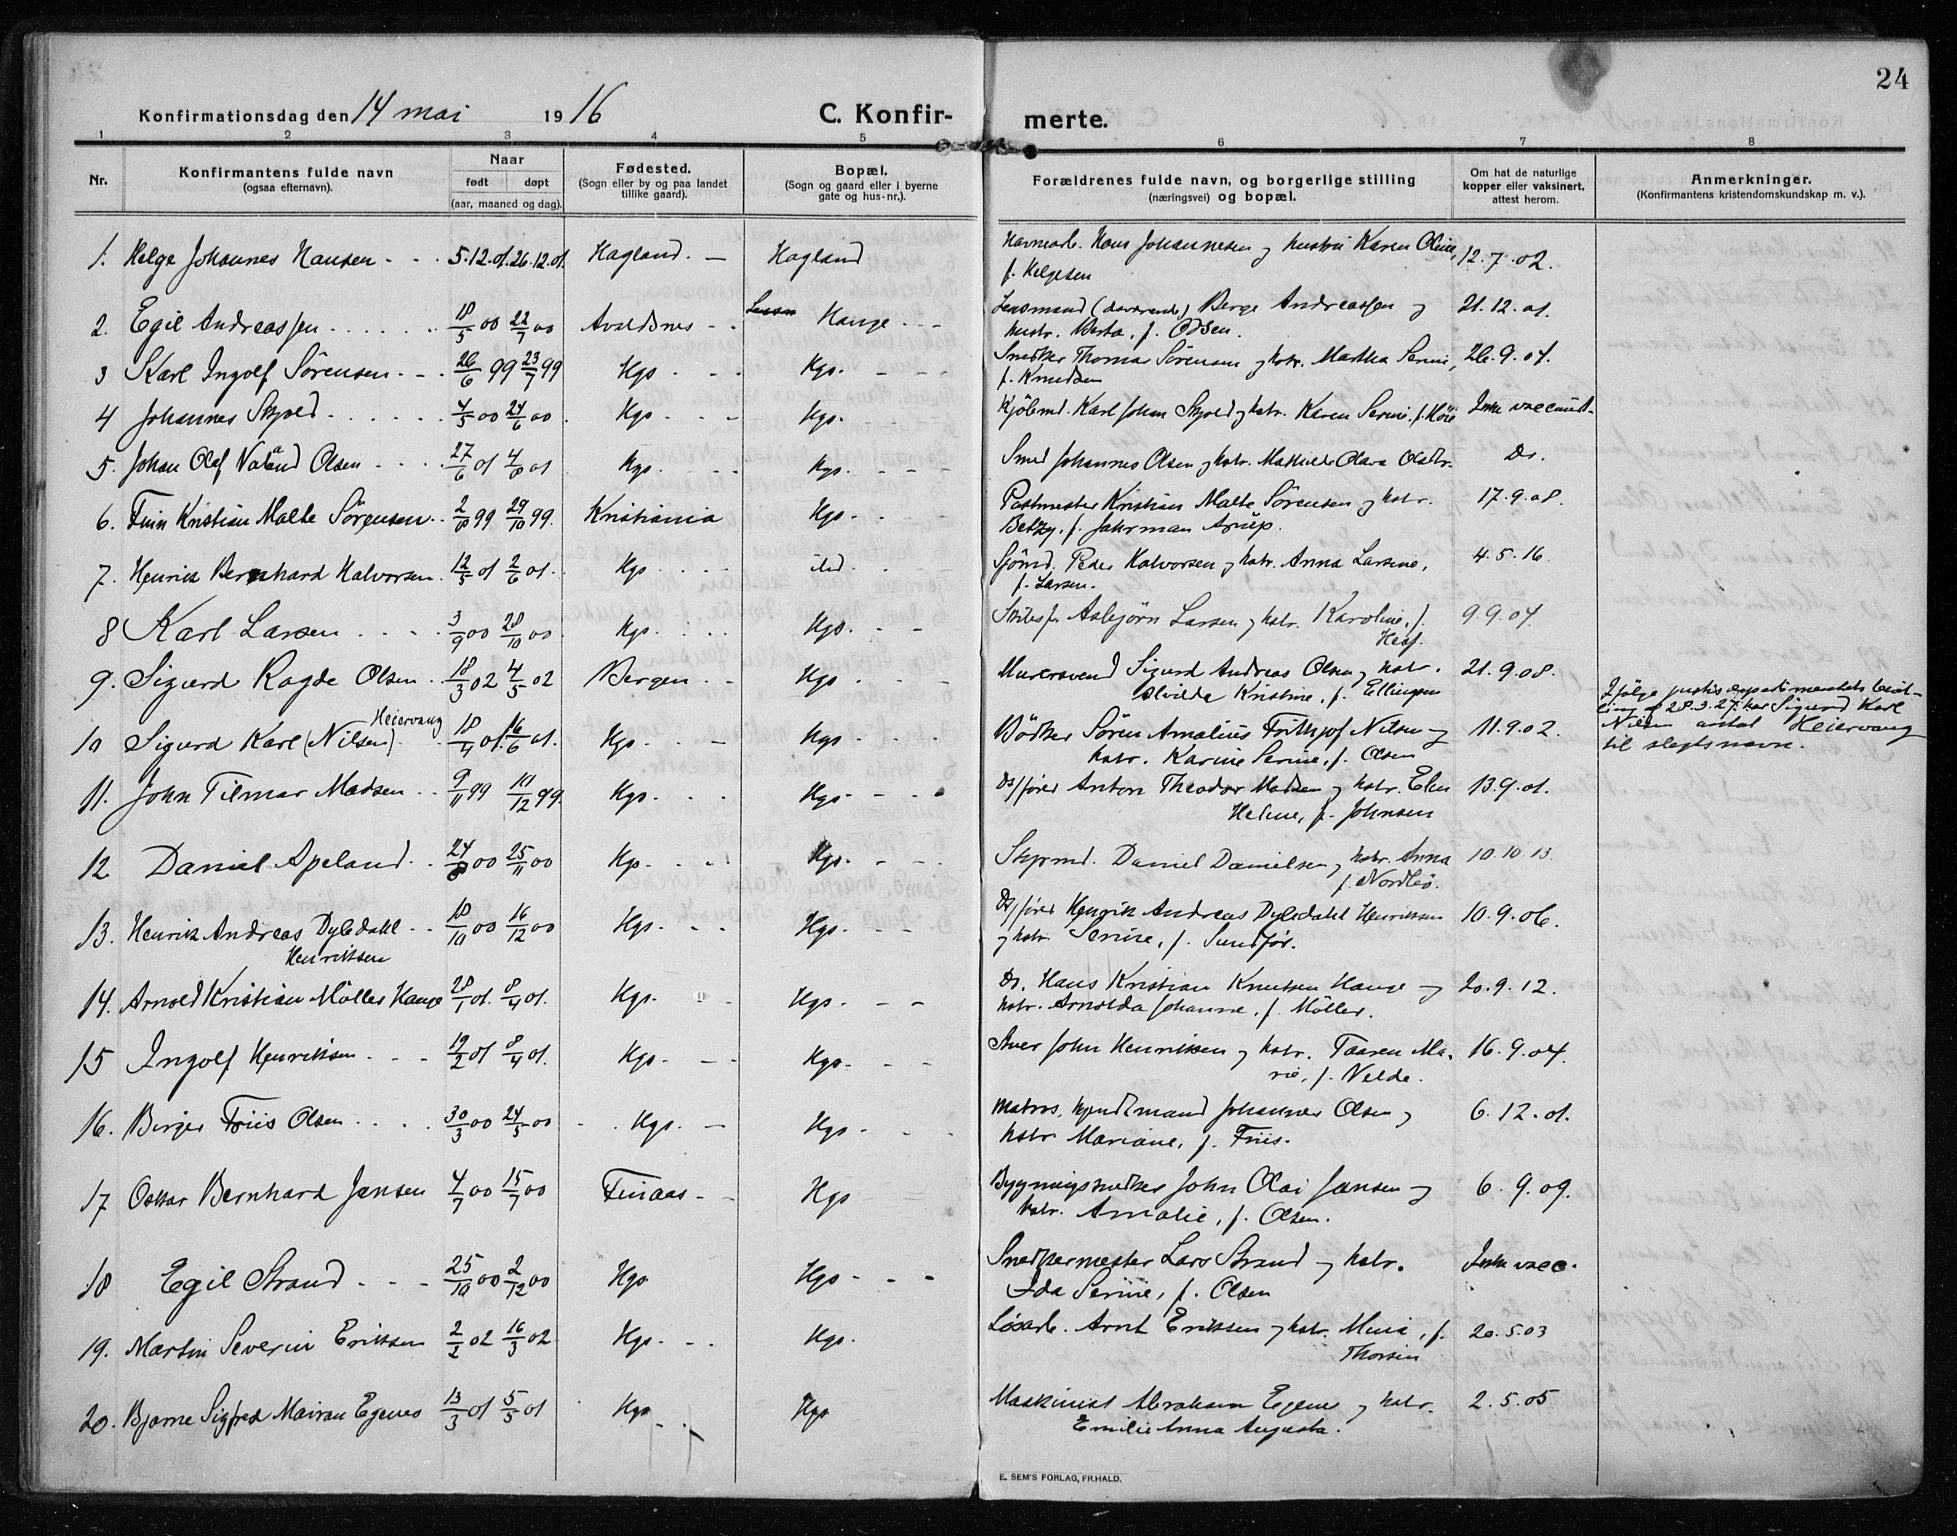 24
Konfirmationsdag den 14 mai 1916 C. Konfir- merte.
1 2 3 4 5 6 7 8
Nr. Konfirmantens fulde navn (ogsaa efternavn). Naar født døpt (aar, maaned og dag). Fødested. (Sogn eller by og paa landet tillike gaard). Bopæl. (Sogn og gaard eller i byerne gate og hus-nr.). Forældrenes fulde navn, og borgerlige stilling (næringsvei) og bopæl. Om hat de naturlige kopper eller vaksinert, attest herom. Anmerkninger. (Konfirmantens kristendomskundskap m. v.).
1. Helge Johannes Hansen - - - 5.12.01. 26.12.01. Hagland. - Hagland Havnearb. Hans Johannesen og hustru Karen Oline, 12.7.02.
f. Helgesen
2. Egil Andreassen 18/5 00 22/7 00 Avaldsnes - - Hauge - - Lensmand (daværende) Berge Andreassen og 21.12.01.
hustr. Berta, f. Olsen.
3 Karl Ingolf Sörensen - - 26/6 99 23/7 99 Hgs - - Hgs. - - - Snedker Thomas Sörensen og hstr. Martha Serine, 26.9.01.
f. Knudsen
4 Johannes Skjold 4/5 00 24/6 00 Hgs - - - Hgs. - - Karl Johan Skjold og hstr. Karen Serine, f. Ikke vaccinert.
5. Johan Olaf Valand Olsen - - - 27/6 01 4/8 01 Hgs. - - - Hgs. - - - Smed Johannes Olsen og hstr. Mathilde Olava Do.
6. Finn Kristian Malte Sörensen - 2/8 99 29/10 99. Kristiania Hgs. - - Postmester Kristian Malte Sörensen og hstr. 17.9.08.
Betzy, f. Aarup.
7. Henrik Bernhard Halvorsen. 12/5 01 2/6 01. Hgs - - - Sjömd. Peder Halvorsen og hstr. Anna Larsine, 4.5.16.
f. Larsen.
8 Karl Larsen 3/9 00 28/10 00 Hgs. - - - Hgs. - - Asbjörn Larsen og hstr. Karoline, f. 9.9.04.
9. Sigurd Ragde Olsen. 18/3 02 4/5 02 Bergen - - Hgs - - - Murersvend Sigurd Andreas Olsen og hstr. 21.9.08.
Alvilda Kristine, f. Ellingsen
Heiervang
10 Sigurd Karl (Nilsen) 18/4 01. 16/6 01. Hgs. - - Hgs. - - - Bödker Sören Amalius Frithjof Nilsen og 11.9.02. Ifölge justisdepartementets bevil-
hstr. Karine Serine, f. Olsen ling af 28.3.27 har Sigurd Karl
Nilsen antat Heiervang
til slegtsnavn.
11. John Tilmar Madsen - - 9/11 99 10/12 99. Hgs. - - - Hgs. - - - Ds/förer Anton Theodor Madsen og hstr. Elen 13.9.01.
Helene, f. Johnsen
12 Daniel Apeland - - 24/8 00 25/11 00 Hgs. - - - Hgs. - - - Styrmd. Daniel Danielsen og hstr. Anna 10.10.13.
f. Nordbö.
13. Henrik Andreas Dybdahl - - 18/10 00 16/12 00 Hgs. - - - Hgs. - - - Ds/förer Henrik Andreas Dybdahl Henriksen 10.9.06.
Henriksen og hstr. Serine, f. Sundför.
14. Arnold Kristian Möller Hauge 28/1 01. 8/4 01. Hgs. - - Hgs. - - Do. Hans Kristian Knutsen Hauge og 20.9.12.
hstr. Arnolda Johanne, f. Möller.
15 Ingolf Henriksen - - - 19/2 01 8/4 01. Hgs. - - - Hgs. - - John Henriksen og hstr. Taaren Ma- 16.9.04.
rie, f. Velde.
16. Birger Friis Olsen 30/3 00 24/5 00 - Hgs. - Hgs. - - Matros, Johannes Olsen og 6.12.01.
hstr Mariane, f. Friis.
17 Oskar Bernhard Jansen 4/7 00 15/7 00 Finaas - - Hgs Bygningssnedker John Olai Jansen og 6.9.09.
hstr. Amalie, f. Olsen.
18 Egil Strand - - - 25/10 00 2/12 00 Hgs Hgs - - - Snedkermester Lars Strand og hstr. Ikke vacc.
Ida Serine, f. Olsen
19. Martin Severin Eriksen 2/2 02 16/3 02 Hgs. - - Hgs. Lösarb. Arnt Eriksen og hstr. Mina, f. 20.5.03
Thorsen
20. Bjarne Sigfred Egenes 13/3 01 5/5 01 Hgs - - Hgs Maskinist Abraham Egenes og hstr. 2.5.05
Emilie Anna Augusta.
E. SEM'S FORLAG, FR.HALD.